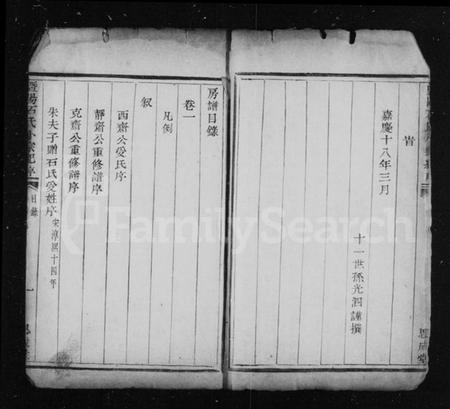 旹
嘉慶十八年三月
十一世孫光泗謹撰
思成堂
房譜目錄
卷一
凡例
敘
西齋公受氏序
靜齋公重修譜序
克齋公重修譜序
朱夫子贈石氏受姓序 宋淳熙十四年
目錄
一
FamilySearch